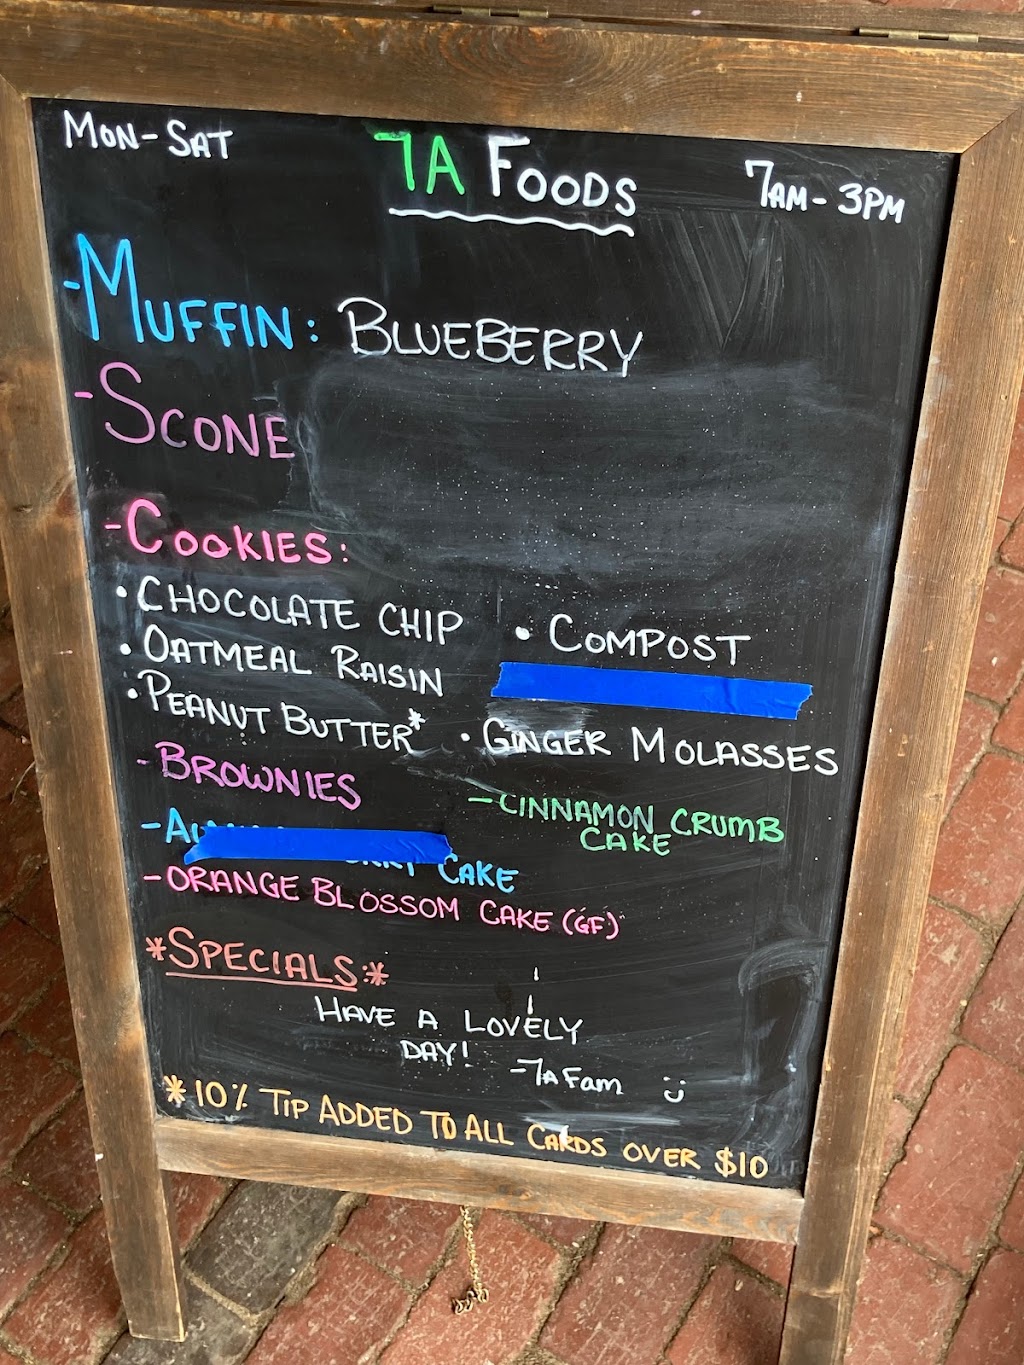 Mon-Sat
7A Foods
7am - 3pm
- Muffin: Blueberry
- Scone
- Cookies:
• Chocolate Chip
• Oatmeal Raisin
• Peanut Butter*
• Compost
• Ginger Molasses
- Brownies
- Cinnamon Crumb
Cake
- Cake
- Orange Blossom Cake (GF)
*Specials:*
Have a lovely
day!
-7A Fam :)
*10% Tip Added To All Cards over $10